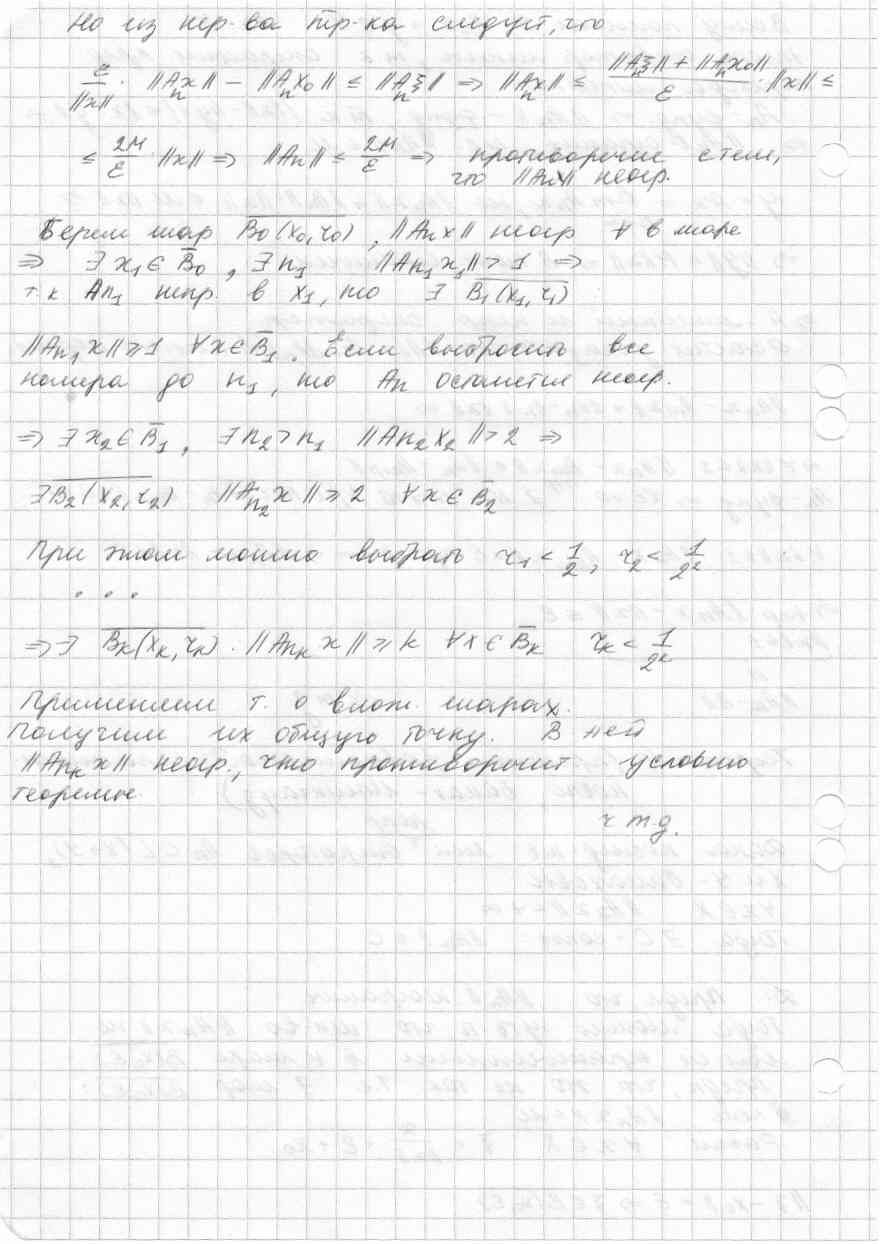 Но из нер-ва тр-ка следует, что
ε/||x|| · ||Aₙx|| − ||Aₙx₀|| ≤ ||Aₙξ|| ⇒ ||Aₙx|| ≤ (||Aₙξ|| + ||Aₙx₀||)/ε · ||x|| ≤
≤ 2M/ε · ||x|| ⇒ ||Aₙ|| ≤ 2M/ε ⇒ противоречие с тем,
что ||Aₙ|| неогр.
Берем шар B₀(x₀, r₀), ||Aₙx|| неогр ∀ в шаре
⇒ ∃ x₁ ∈ B̅₀, ∃ n₁ ||Aₙ₁x₁|| > 1 ⇒
т.к Aₙ₁ непр. в x₁, то ∃ B₁(x₁, r₁)
||Aₙ₁x|| ≥ 1 ∀x ∈ B̅₁. Если выбросить все
номера до n₁, то Aₙ останется неогр.
⇒ ∃ x₂ ∈ B̅₁, ∃ n₂ > n₁ ||Aₙ₂x₂|| > 2 ⇒
∃ B₂(x₂, r₂) ||Aₙ₂x|| ≥ 2 ∀x ∈ B̅₂
При этом можно выбрать r₁ < 1/2, r₂ < 1/2²
. . .
⇒ ∃ Bₖ(xₖ, rₖ) . ||Aₙₖx|| ≥ k ∀x ∈ B̅ₖ rₖ < 1/2ᵏ
Применяем т. о влож. шарах.
Получим их общую точку. В ней
||Aₙₖx|| неогр., что противоречит условию
теоремы.
ч т.д.